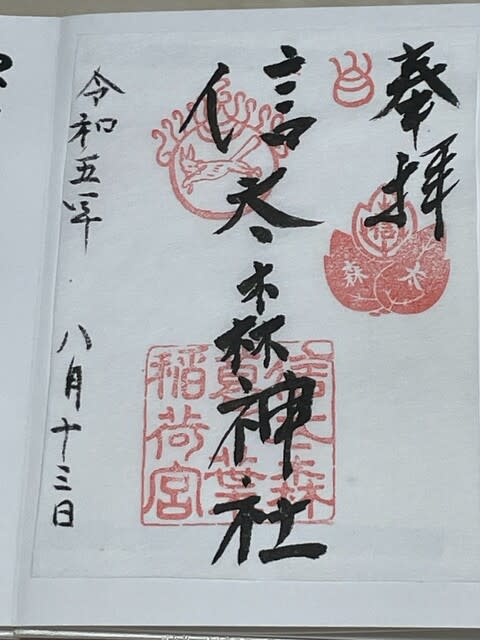 奉拝
信太森神社
信太森
葛葉
稲荷宮
信
太
森
令和五年 八月十三日